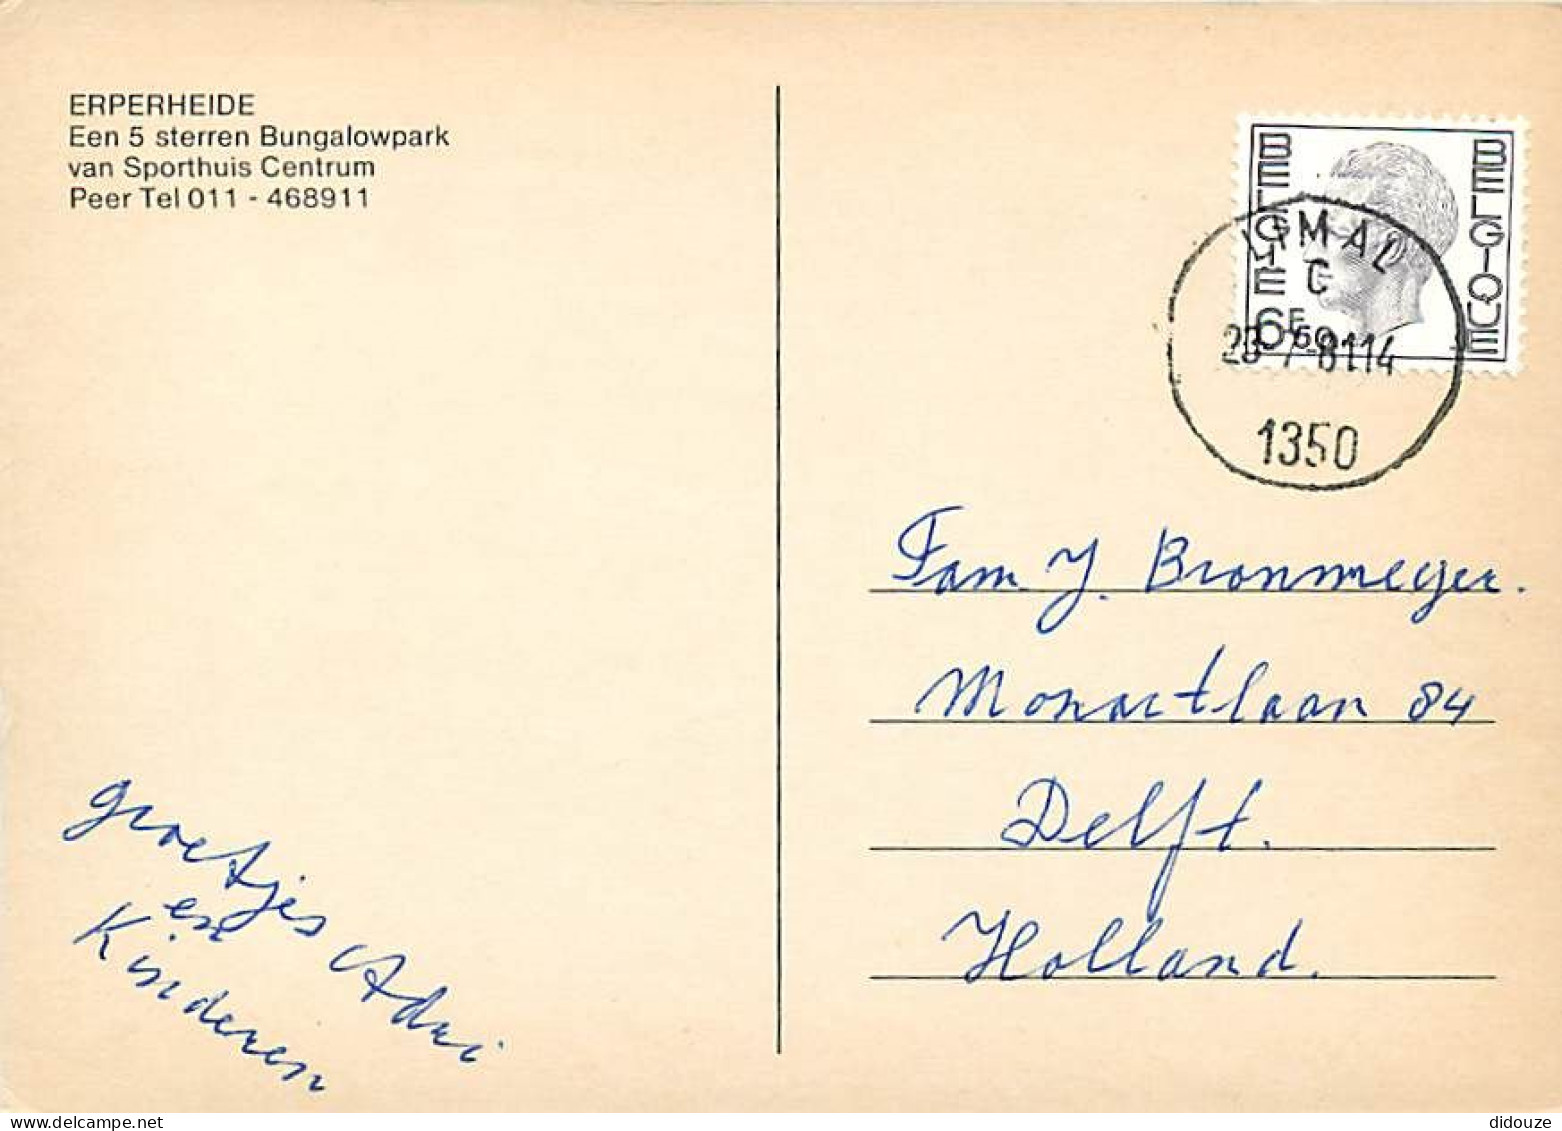 ERPERHEIDE
Een 5 sterren Bungalowpark
van Sporthuis Centrum
Peer Tel 011 - 468911
BELGIE
BELGIQUE
6F50
LIMAL
C
-7-8114
1350
Fam. J. Bronmeyer.
Monartlaan 84
Delft.
Holland.
groetjes Adri
en
Kinderen
delcampe.net
didouze